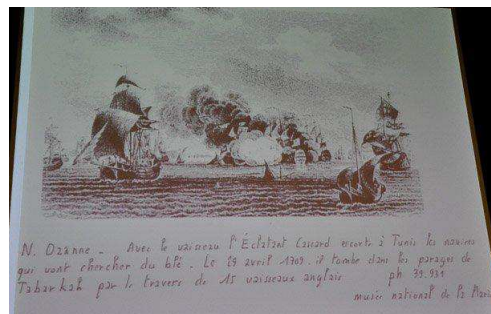 N. Ozanne - Avec le vaisseau l'Éclatant Cassard escorte à Tunis les navires
qui vont chercher du blé. Le 29 avril 1709. il tombe dans les parages de
Tabarkah par le travers de 15 vaisseaux anglais ph 39.931
musée national de la Marine